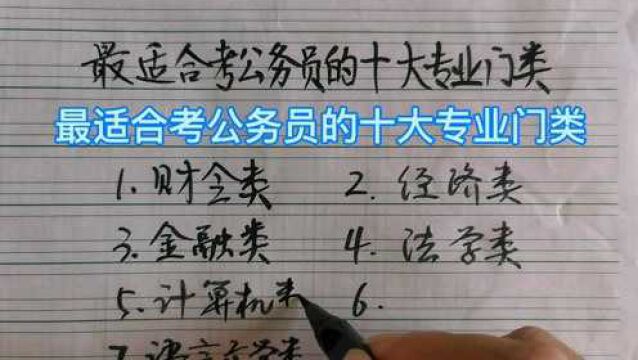 最适合考公务员的十大专业门类
最适合考公务员的十大专业门类
1.财会类 2.经济类
3.金融类 4.法学类
5.计算机类 6.
7.语言文学类